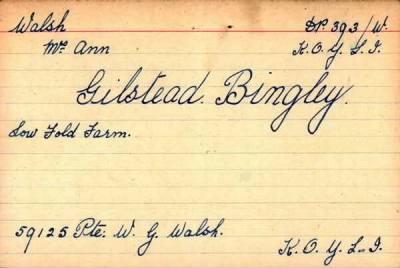 Walsh DP. 393/W.
Mrs Ann K. O. Y. L. I.
Gilstead. Bingley.
Low Fold Farm.
59125 Pte: W. G. Walsh.
K. O. Y. L. I.